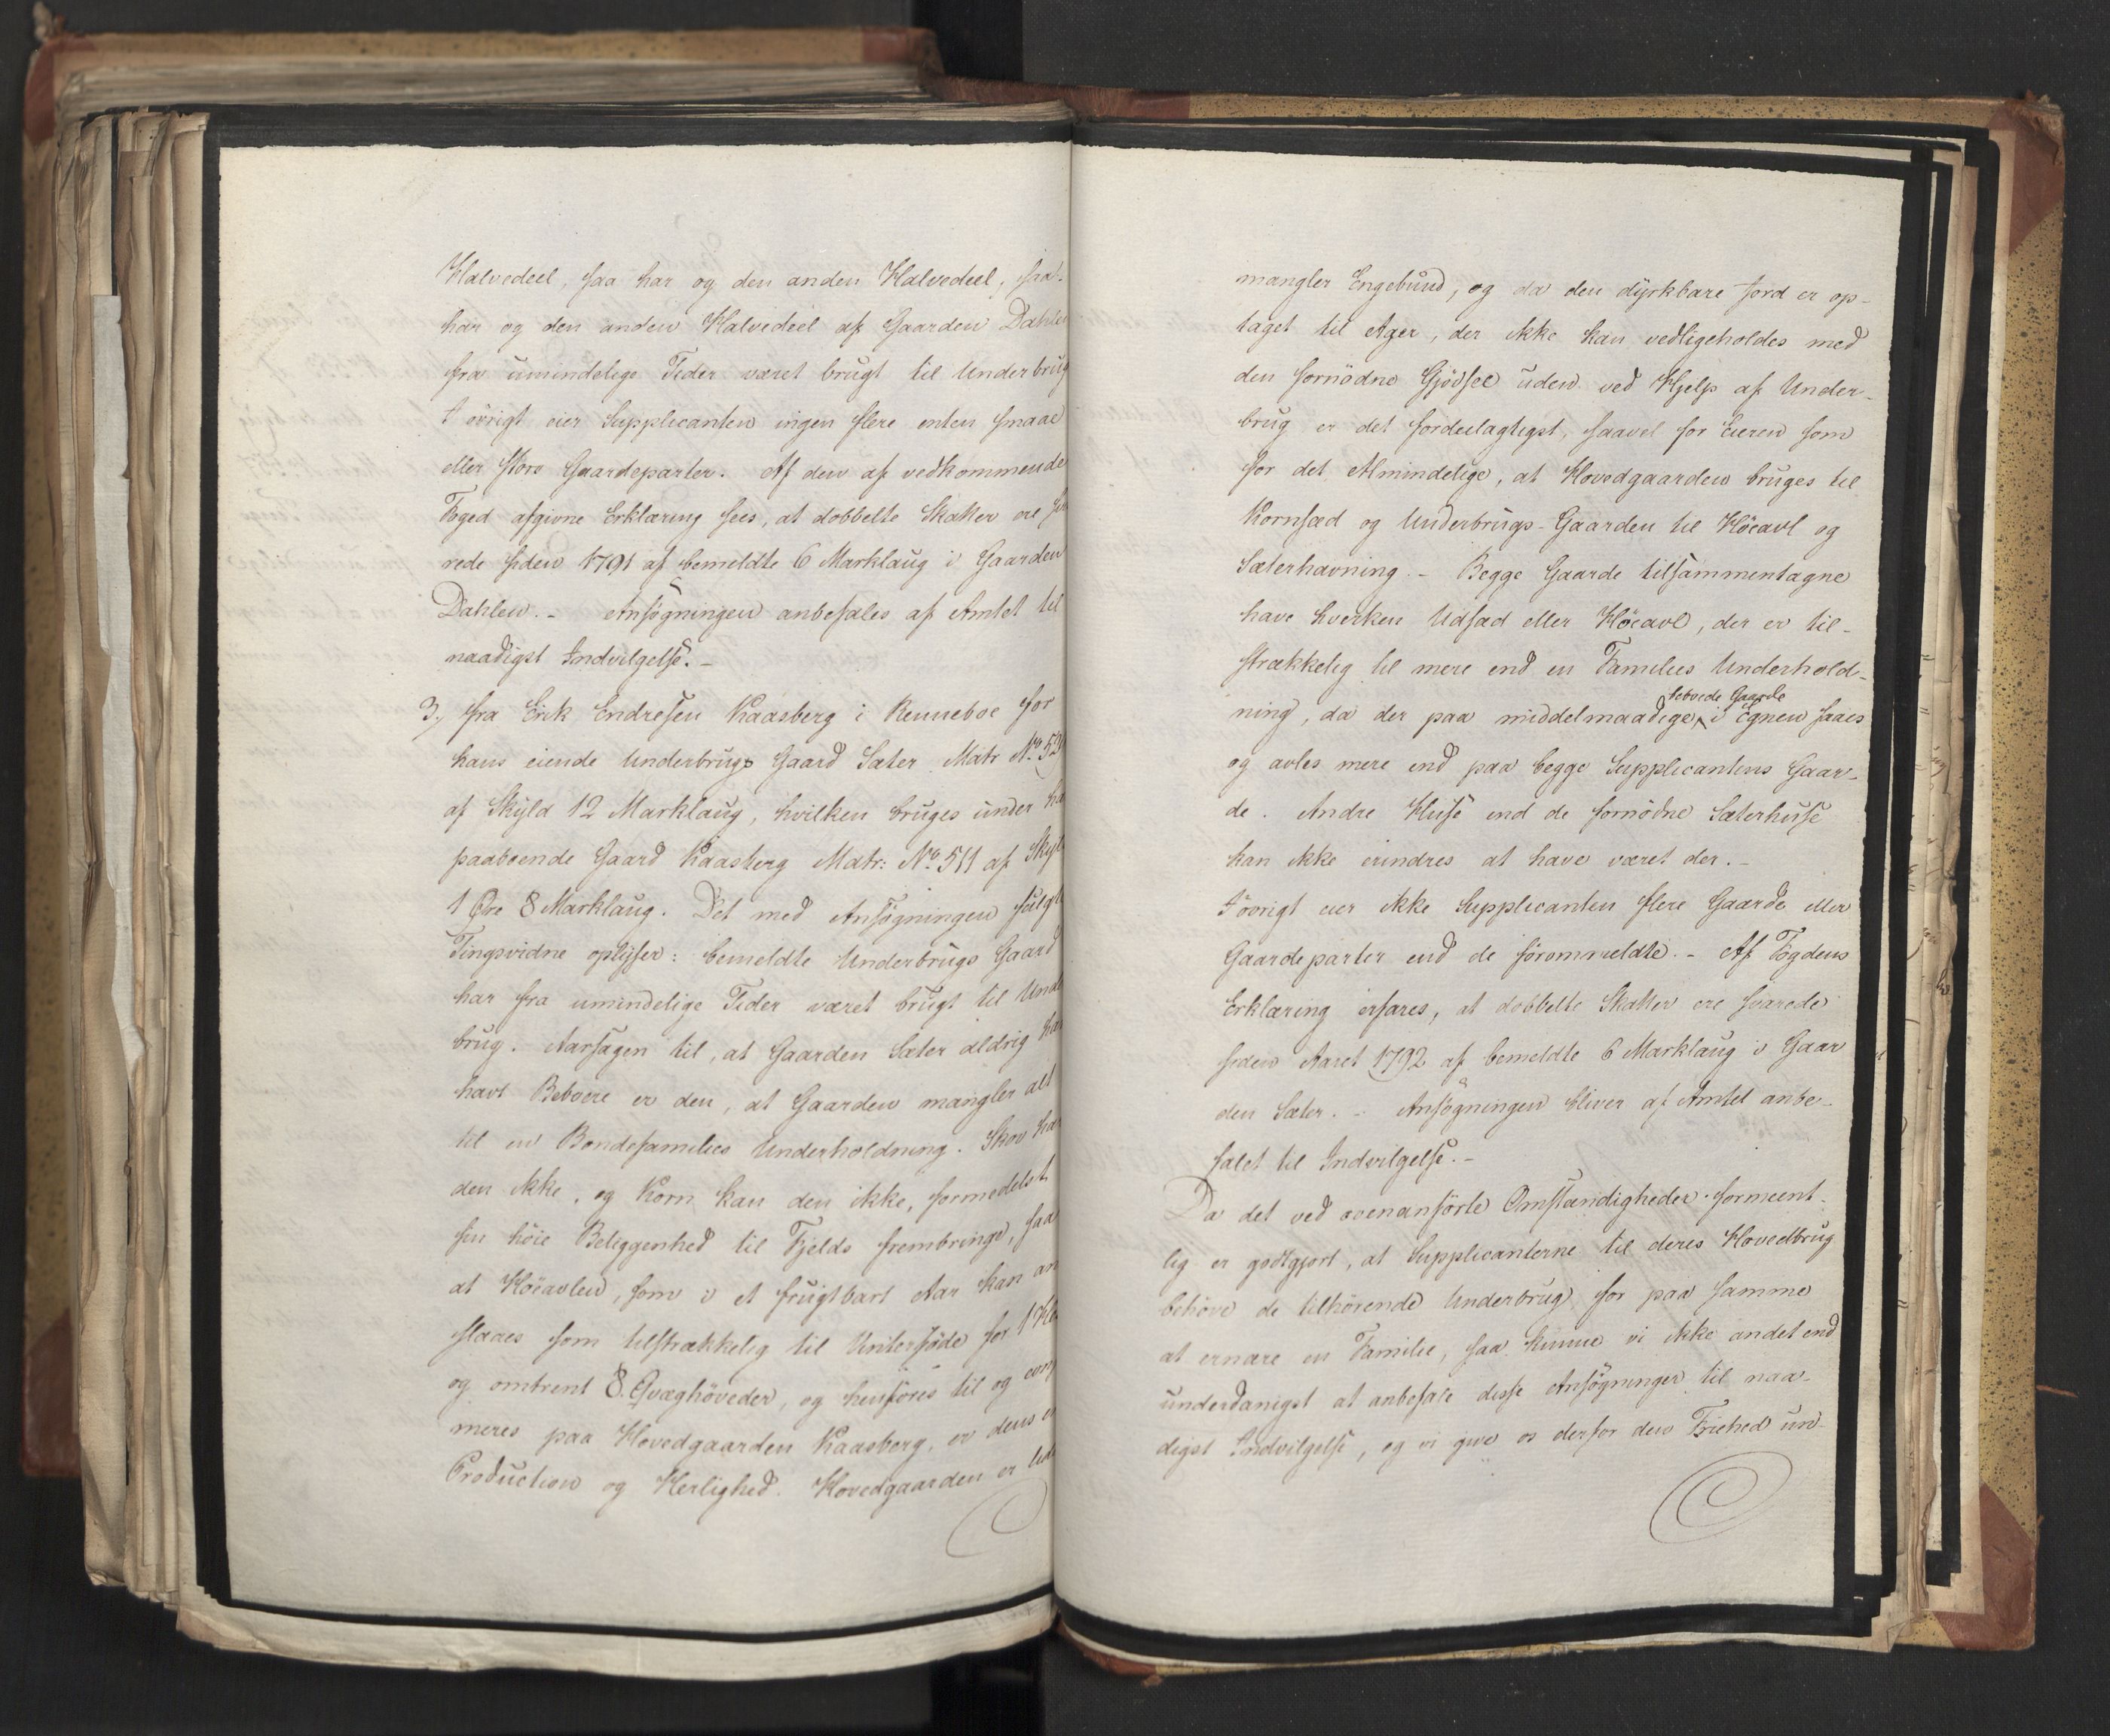 Halvedeel, saa har og den anden Halvedeel, saa
har og den anden Halvedeel af Gaarden Dahlen
fra umindelige Tider været brugt til Underbrug
I övrigt eier Supplicanten ingen flere enten smaae
eller store Gaardeparter. Af den af vedkommende
Foged afgivne Erklæring sees, at dobbelte Skatter ere sva
rede siden 1791 af bemeldte 6 Marklaug i Gaarden
Dahlen. - Ansögningen anbefales af Amtet til
naadigst Indvilgelse. -
3, fra Erik Endresen Kaasberg i Renneboe for
hans eiende Underbrugs Gaard Sæter Matr No 52
af Skyld 12 Marklaug, hvilken bruges under ha
paaboende Gaard Kaasberg Matr: No 511 af Skyl
1 Öre 8 Marklaug. Det med Ansögningen fulgte
Tingsvidne oplyser: bemeldte Underbrugs Gaard
har fra umindelige Tider været brugt til Unde
brug. Aarsagen til, at Gaarden Sæter aldrig har
havt Beboere er den, at Gaarden mangler alt
til en Bondefamilies Underholdning. Skov har
den ikke, og Korn kan den ikke, formedelst
sin höie Beliggenhed til Fjelds frembringe, saa
at Höeavlen, som i et frugtbart Aar kan an
slaaes som tilstrækkelig til Vinterföde for 1 He
og omtrent 8 Qvæghöveder, og henföres til og con
meres paa Hovedgaarden Kaasberg, er dens e
Production og Herlighed. Hovedgaarden er lid
mangler Engebund, og da den dyrkbare Jord er op-
taget til Ager, der ikke kan vedligeholdes med
den fornödne Gjödsel uden ved Hjelp af Under-
brug er det fordeelagtigst, saavel for Eieren som
for det Almindelige, at Hovedgaarden bruges til
Kornsæd og Underbrugs-Gaarden til Höeavl og
Sæterhavning. - Begge Gaarde tilsammentagne
have hverken Udsæd eller Höeavl, der er til-
strækkelig til mere end en Families Underhold-
beboede Gaarde
ning, da der paa middelmaadige i Egnen saaes
og avles mere end paa begge Supplicantens Gaar-
de. Andre Huse end de fornödne Sæterhuse
kan ikke erindres at have været der. -
I övrigt eier ikke Supplicanten flere Gaarde eller
Gaardeparter end de förommeldte. - Af Fogdens
Erklæring erfares, at dobbelte Skatter ere svarede
siden Aaret 1792 af bemeldte 6 Marklaug i Gaar
den Sæter. - Ansögningen bliver af Amtet anbe-
falet til Indvilgelse. -
Da det ved ovenanförte Omstændigheder formeent-
lig er godtgjort, at Supplicanterne til deres Hovedbrug
behöve de tilhörende Underbrug for paa samme
at ernære en Familie, saa kunne vi ikke andet end
underdanigst at anbefale disse Ansögninger til naa-
digst Indvilgelse, og vi give os derfor den Friehed un-